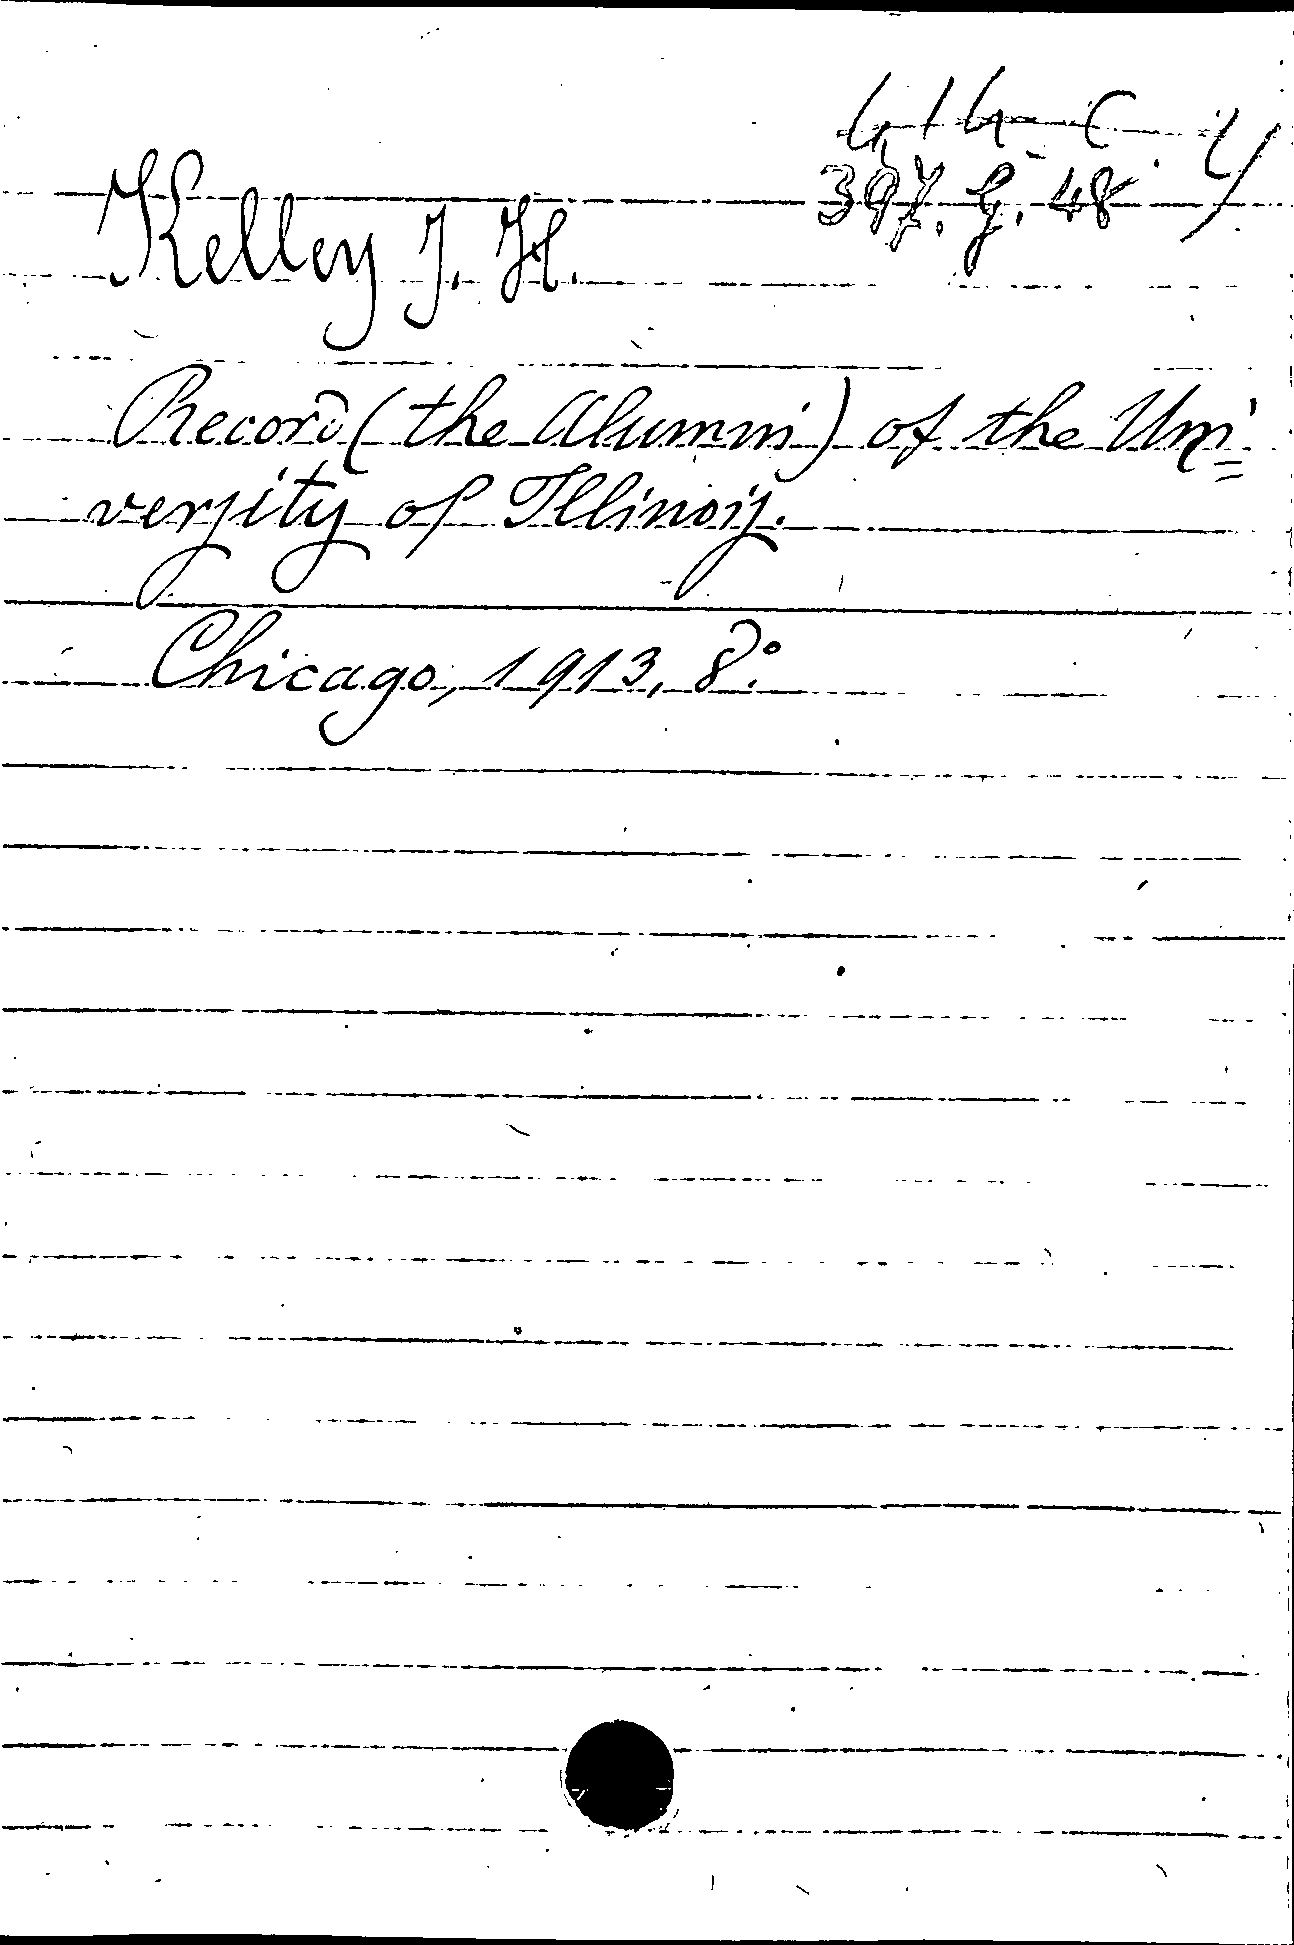 397. G. 48
Kelley J. H.
Record (the Alumni) of the Uni=
versity of Illinois.
Chicago, 1913, 8.°